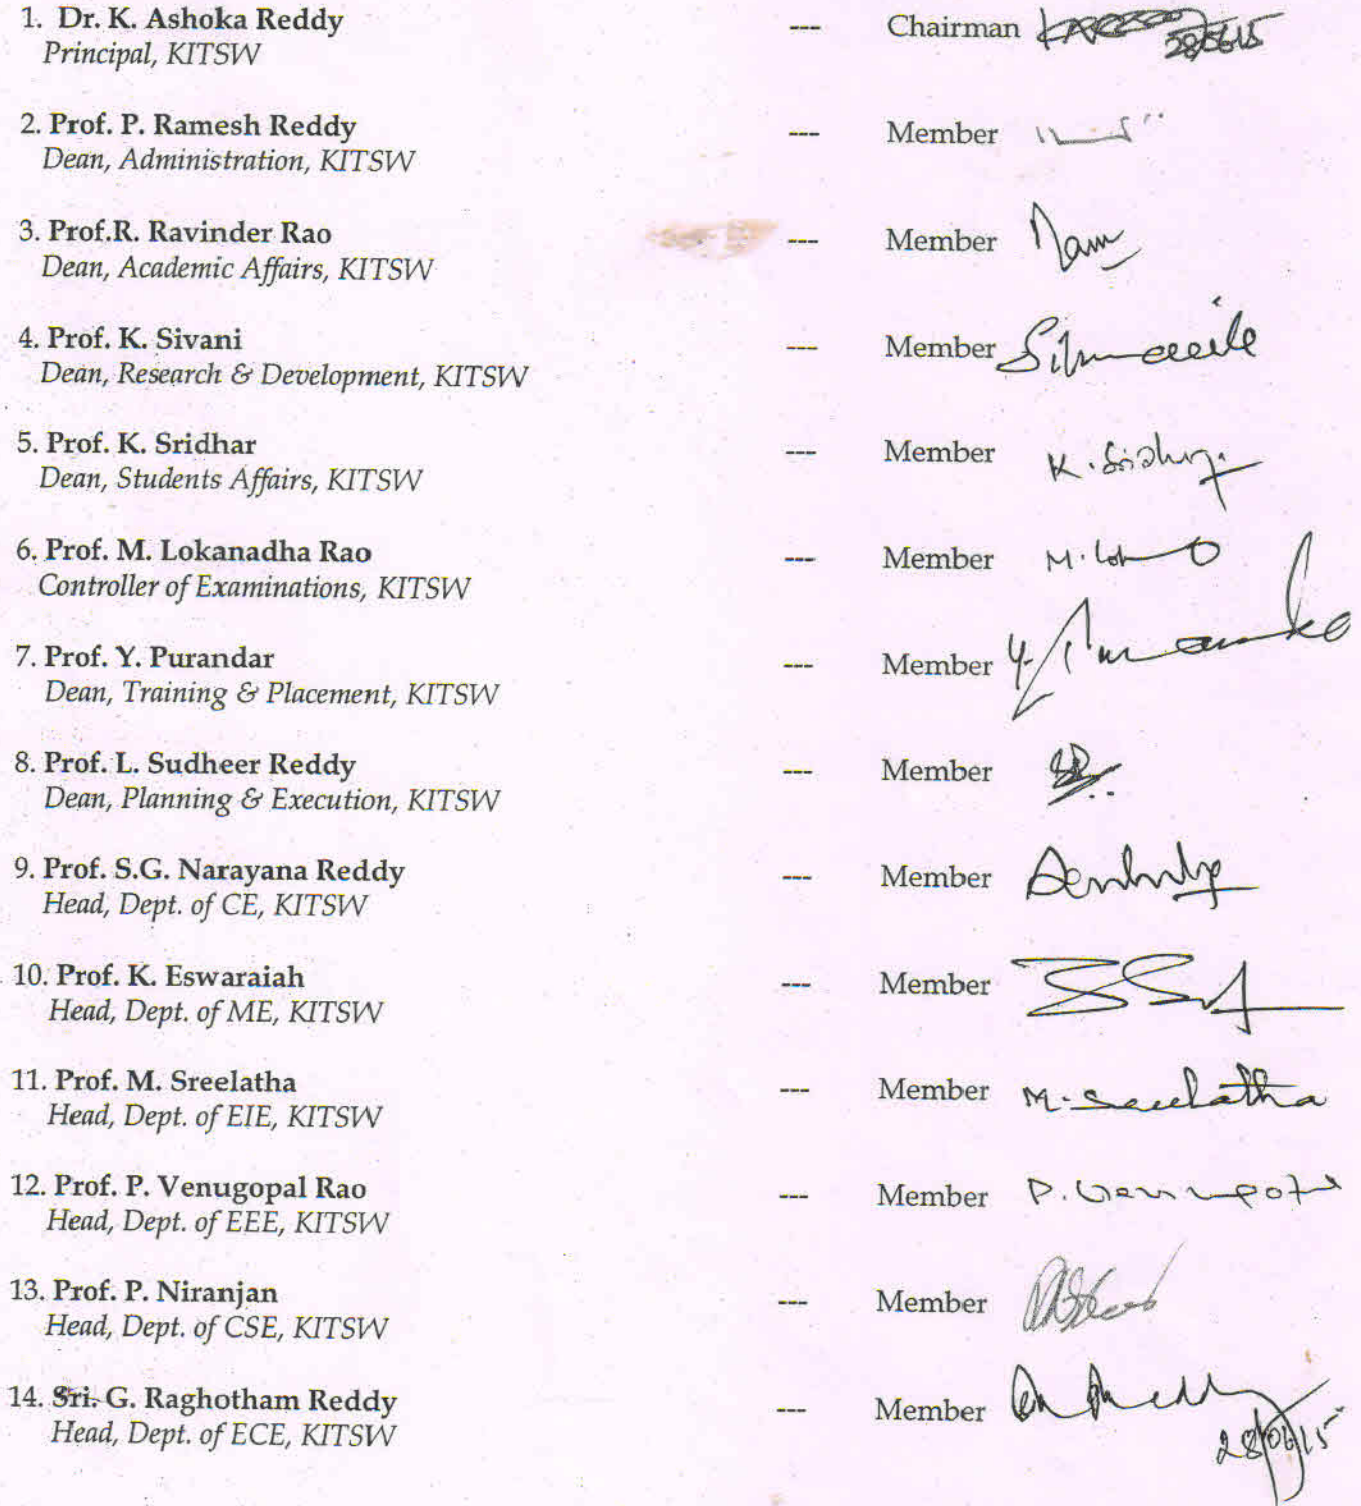 1. Dr. K. Ashoka Reddy --- Chairman 28/06/15
Principal, KITSW
2. Prof. P. Ramesh Reddy --- Member
Dean, Administration, KITSW
3. Prof.R. Ravinder Rao --- Member
Dean, Academic Affairs, KITSW
4. Prof. K. Sivani --- Member
Dean, Research & Development, KITSW
5. Prof. K. Sridhar --- Member K. Sridhar
Dean, Students Affairs, KITSW
6. Prof. M. Lokanadha Rao --- Member
Controller of Examinations, KITSW
7. Prof. Y. Purandar --- Member
Dean, Training & Placement, KITSW
8. Prof. L. Sudheer Reddy --- Member
Dean, Planning & Execution, KITSW
9. Prof. S.G. Narayana Reddy --- Member
Head, Dept. of CE, KITSW
10. Prof. K. Eswaraiah --- Member
Head, Dept. of ME, KITSW
11. Prof. M. Sreelatha --- Member M. Sreelatha
Head, Dept. of EIE, KITSW
12. Prof. P. Venugopal Rao --- Member
Head, Dept. of EEE, KITSW
13. Prof. P. Niranjan --- Member
Head, Dept. of CSE, KITSW
14. Sri. G. Raghotham Reddy --- Member
Head, Dept. of ECE, KITSW
28/06/15